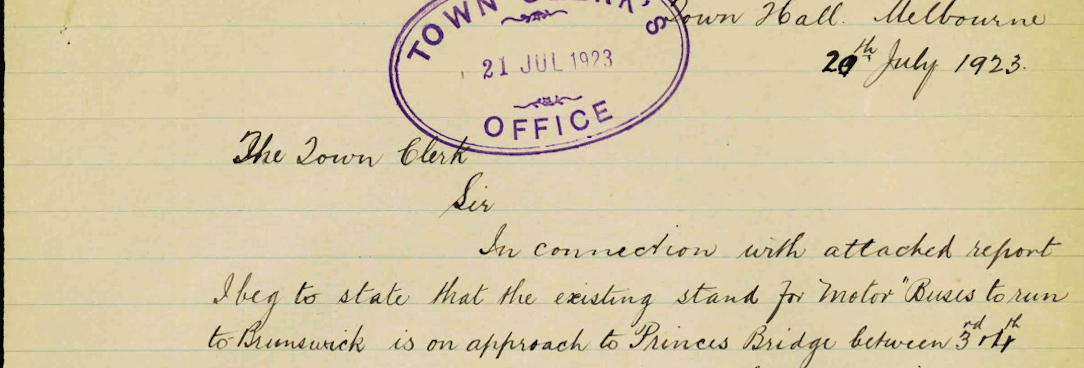 Town Hall. Melbourne
20th July 1923.
TOWN CLERK'S
21 JUL 1923
OFFICE
The Town Clerk
Sir
In connection with attached report
I beg to state that the existing stand for "Motor" Buses to run
to Brunswick is on approach to Princes Bridge between 3rd & 4th